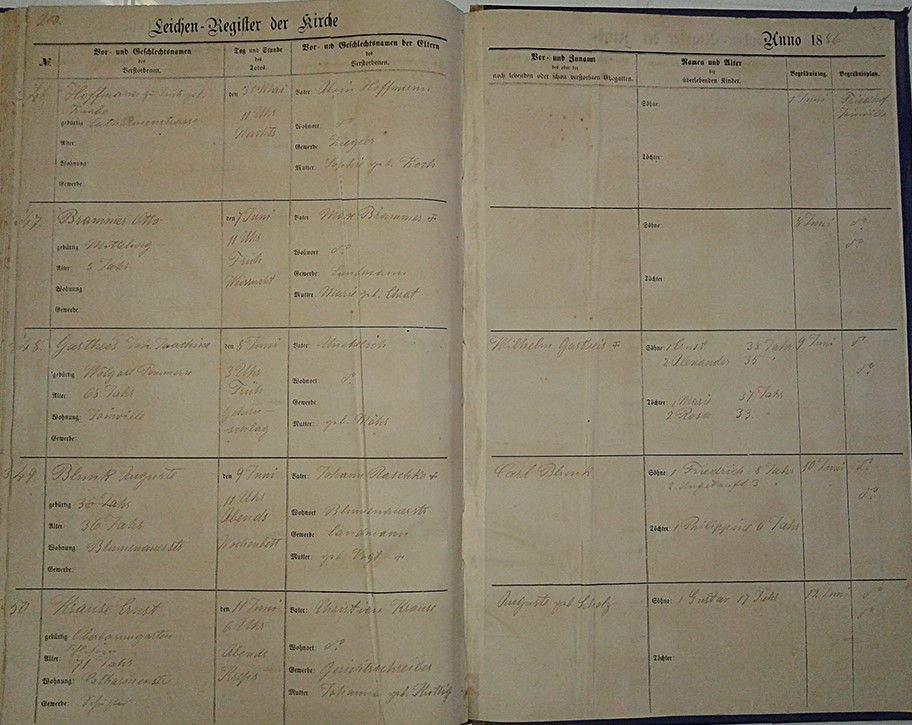 200.
Leichen-Register der Kirche
Anno 1886
№
Vor- und Geschlechtsnamen
des
Verstorbenen.
Tag und Stunde
des
Todes.
Vor- und Geschlechtsnamen der Eltern
des
Verstorbenen.
Vor- und Zunamt
des oder der
noch lebenden oder schon verstorbenen Ehegatten.
Namen und Alter
der
überlebenden Kinder.
Begräbnistag.
Begräbnisplan.
46
Hoffmann
Knabe
gebürtig Catharinenstrasse
Alter:
Wohnung:
Gewerbe:
den 31 Mai
11 Uhr
Nachts
Vater: Hoffmann
Wohnort: do
Gewerbe: Ziegler
Mutter: Sophie geb. Koch
Söhne:
Töchter:
1 Juni
Friedhof
Joinville
47
Brammer Otto
gebürtig
Alter: 5 Jahr
Wohnung
Gewerbe:
den 7 Juni
11 Uhr
Früh
Vater: Max Brammer +
Wohnort: do
Gewerbe: Landmann
Mutter: Marie geb.
Söhne:
Töchter:
8 Juni
do
do
48.
gebürtig Wolgast Pommern
Alter: 65 Jahr
Wohnung: Joinville
Gewerbe:
den 8 Juni
3 Uhr
Früh
Gehirn-
schlag
Vater:
Wohnort do
Gewerbe:
Mutter: geb.
Wilhelm +
Söhne: 1 Ernst 38 Jahr
2 Alexander 35 "
Töchter: 1 Marie 37 Jahr
2 Rosa 33.
9 Juni
do
do
49
Blunk Auguste
gebürtig 36 Jahr
Alter: 36 Jahr
Wohnung: Blumenauerstr
Gewerbe:
den 9 Juni
11 Uhr
Abends
Wochenbett
Vater: Johann Raschke +
Wohnort Blumenauerstr
Gewerbe: Landmann
Mutter: geb. Voigt +
Carl Blunk
Söhne: 1 Friedrich 8 Jahr
2 ungetauft 3 "
Töchter: 1 Philippine 6 Jahr
10 Juni
do
do
50
Krause Ernst
gebürtig Oberbaumgarten
Alter: 71 Jahr
Wohnung: Catharinenstr
Gewerbe:
den 11 Juni
6 Uhr
Abends
Krebs
Vater: Christian Krause
Wohnort: do
Gewerbe: Gerichtsschreiber
Mutter: Johanna geb.
Auguste geb Scholz
Söhne: 1 Gustav 17 Jahr
Töchter:
12 Juni
do
do